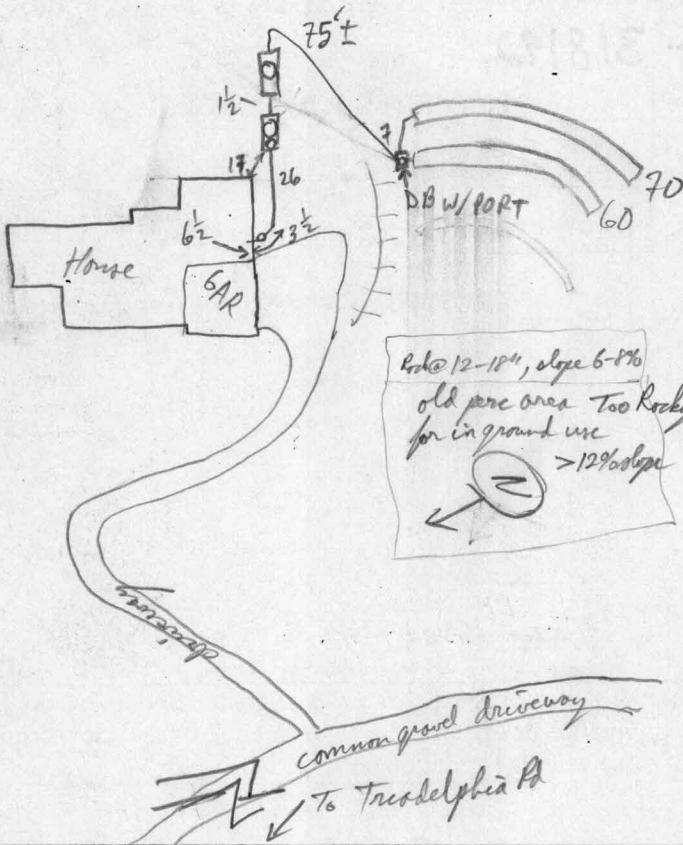 75'±
1½
7
17
26
DB W/PORT
70
60
6½
3½
House
GAR
Rock@ 12-18", slope 6-8%
old perc area Too Rocky
for in ground use
>12% slope
N
driveway
common gravel driveway
To Triadelphia Rd